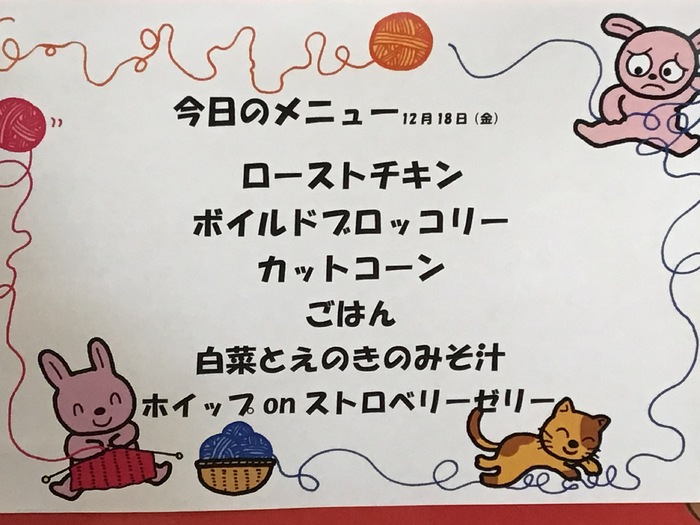 今日のメニュー 12月18日(金)
ローストチキン
ボイルドブロッコリー
カットコーン
ごはん
白菜とえのきのみそ汁
ホイップ on ストロベリーゼリー